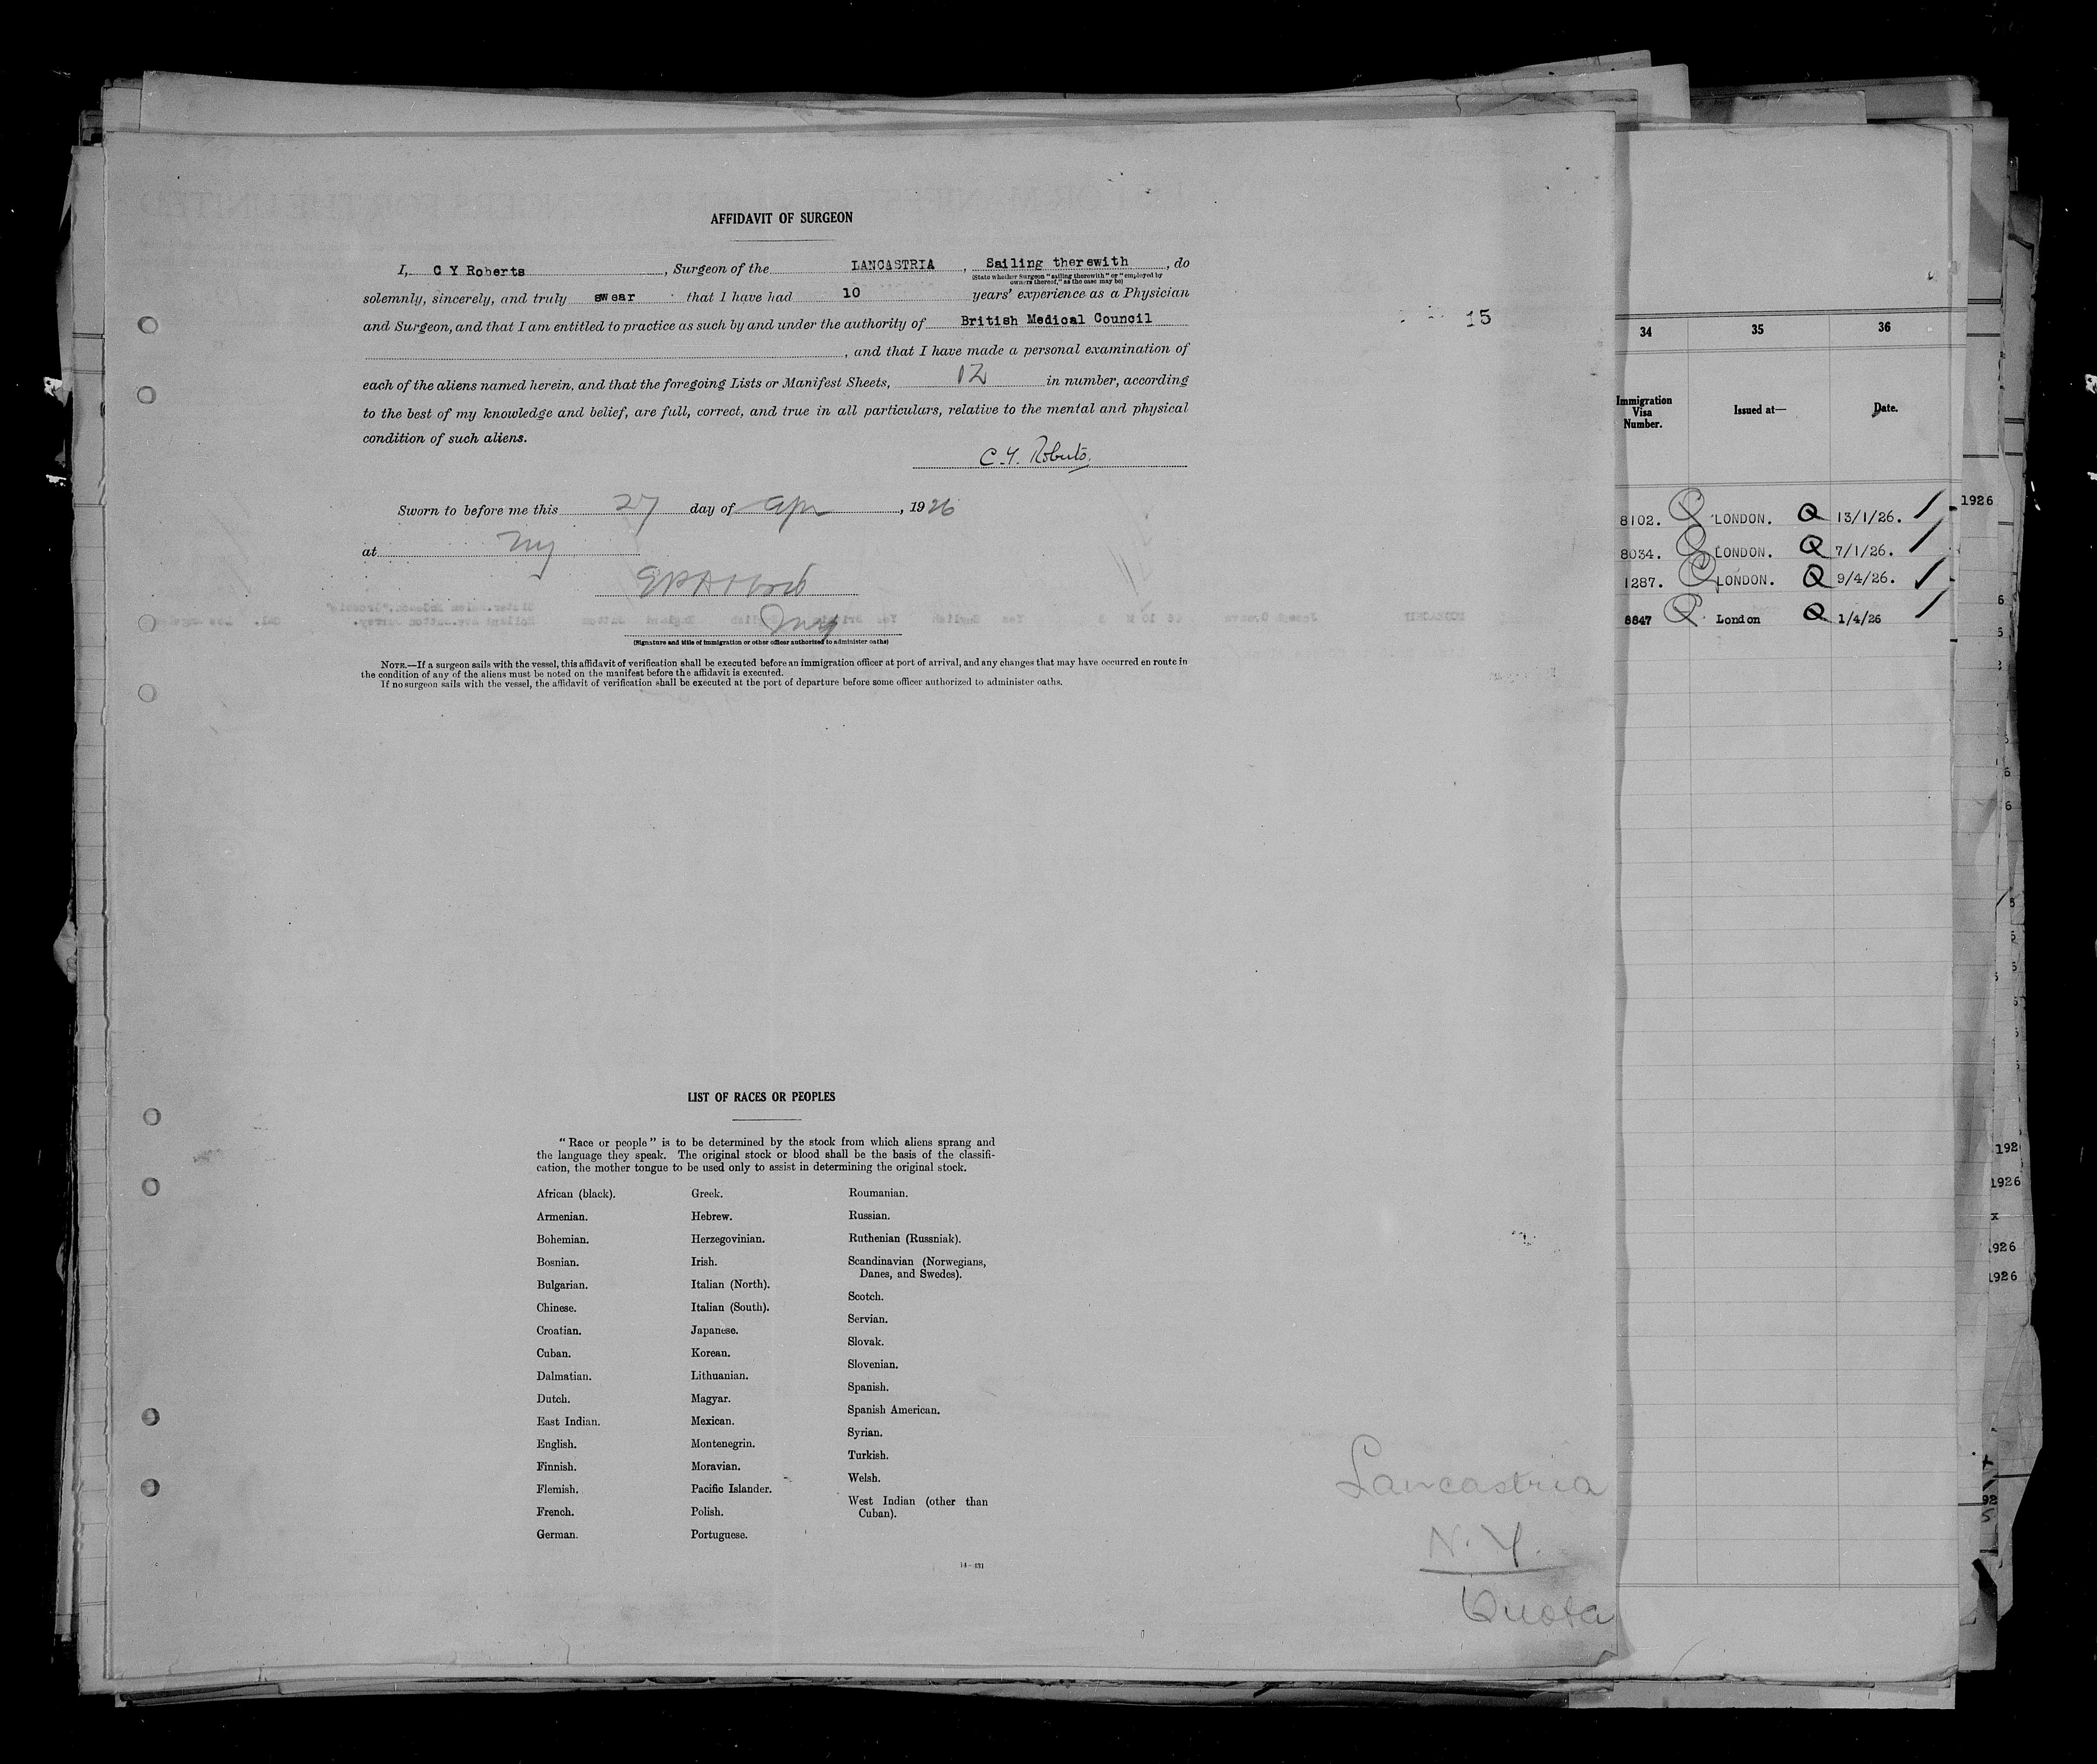 AFFIDAVIT OF SURGEON
I, C Y Roberts, Surgeon of the LANCASTRIA, Sailing therewith, do
(State whether Surgeon "sailing therewith" or "employed by
owners thereof," as the case may be)
solemnly, sincerely, and truly swear that I have had 10 years' experience as a Physician
and Surgeon, and that I am entitled to practice as such by and under the authority of British Medical Council
, and that I have made a personal examination of
each of the aliens named herein, and that the foregoing Lists or Manifest Sheets, 12 in number, according
to the best of my knowledge and belief, are full, correct, and true in all particulars, relative to the mental and physical
condition of such aliens.
C.Y. Roberts.
Sworn to before me this 27 day of Apr, 1926
at NY
(Signature and title of immigration or other officer authorized to administer oaths)
NOTE.—If a surgeon sails with the vessel, this affidavit of verification shall be executed before an immigration officer at port of arrival, and any changes that may have occurred en route in
the condition of any of the aliens must be noted on the manifest before the affidavit is executed.
If no surgeon sails with the vessel, the affidavit of verification shall be executed at the port of departure before some officer authorized to administer oaths.
15
LIST OF RACES OR PEOPLES
"Race or people" is to be determined by the stock from which aliens sprang and
the language they speak. The original stock or blood shall be the basis of the classifi-
cation, the mother tongue to be used only to assist in determining the original stock.
African (black).
Armenian.
Bohemian.
Bosnian.
Bulgarian.
Chinese.
Croatian.
Cuban.
Dalmatian.
Dutch.
East Indian.
English.
Finnish.
Flemish.
French.
German.
Greek.
Hebrew.
Herzegovinian.
Irish.
Italian (North).
Italian (South).
Japanese.
Korean.
Lithuanian.
Magyar.
Mexican.
Montenegrin.
Moravian.
Pacific Islander.
Polish.
Portuguese.
Roumanian.
Russian.
Ruthenian (Russniak).
Scandinavian (Norwegians,
Danes, and Swedes).
Scotch.
Servian.
Slovak.
Slovenian.
Spanish.
Spanish American.
Syrian.
Turkish.
Welsh.
West Indian (other than
Cuban).
Lancastria
N.Y.
Quota
34 35 36
Immigration
Visa
Number.
Issued at—
Date.
8102. Q LONDON. Q 13/1/26.
8034. Q LONDON. Q 7/1/26.
1287. Q LONDON. Q 9/4/26.
8847 Q London Q 1/4/26
1926
192
1926
1926
1926